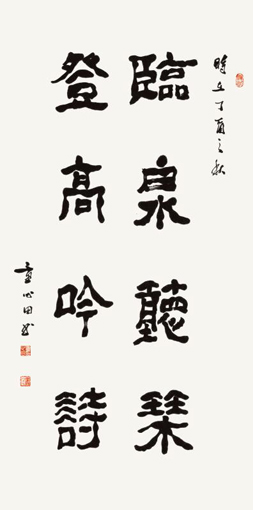 時在丁酉之秋
臨泉聽琴
登高吟詩
童心田书